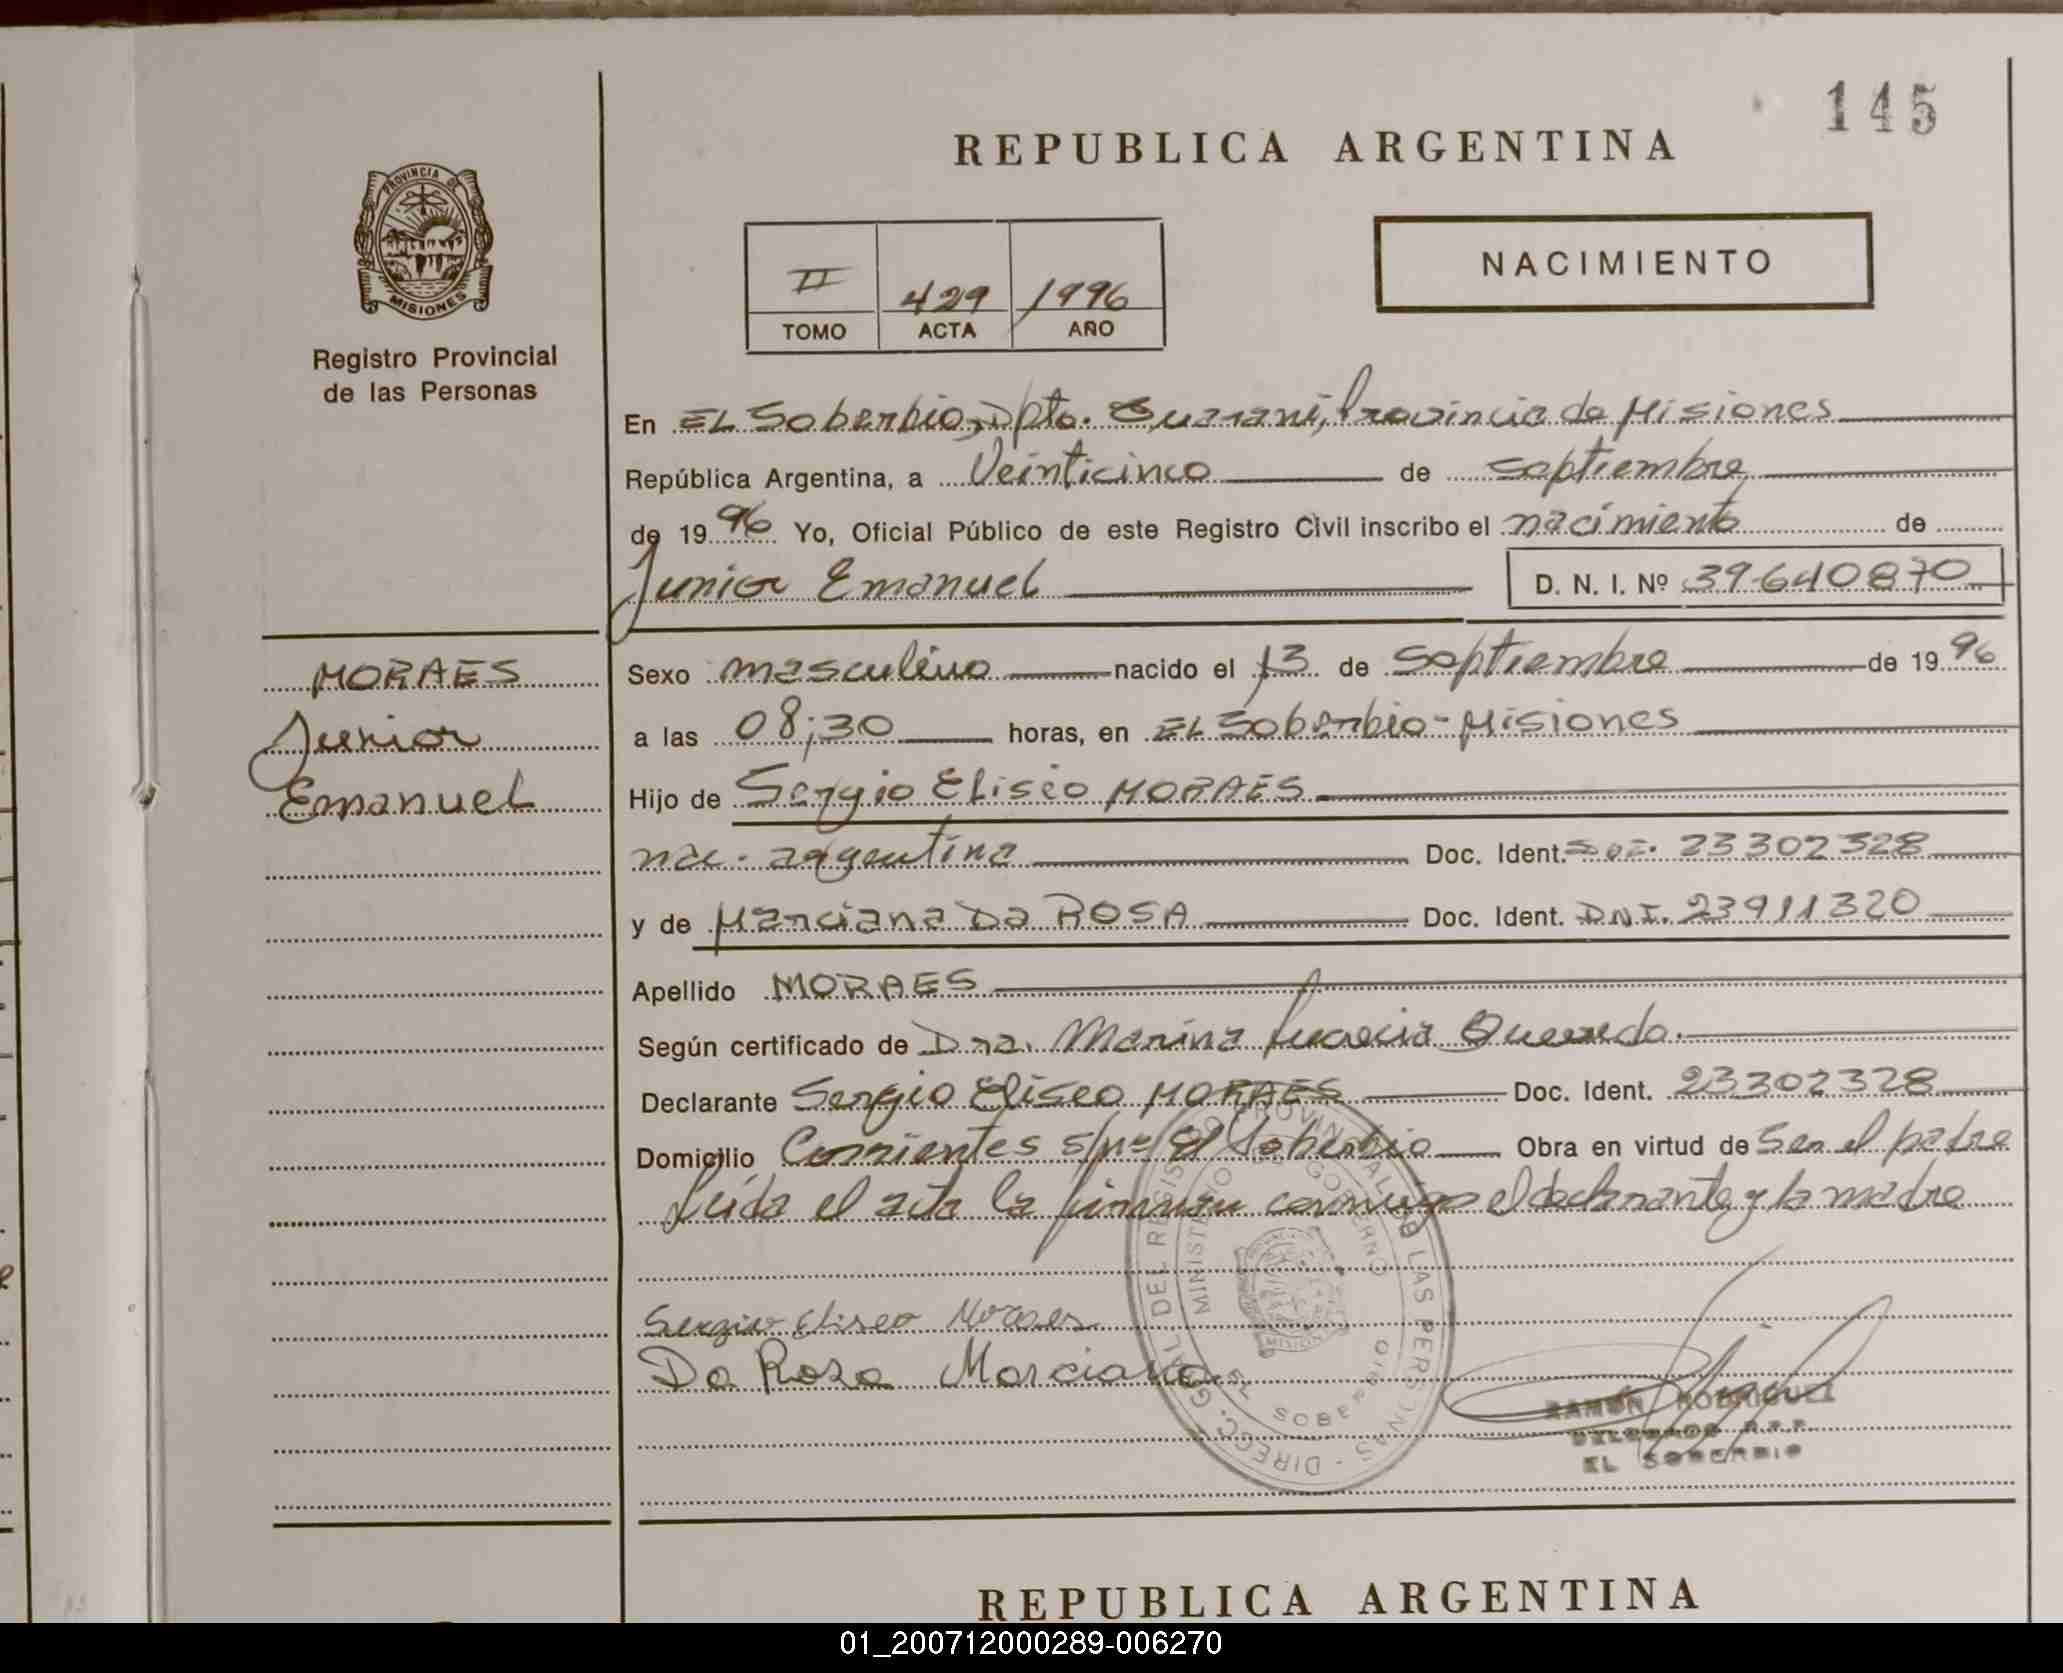 145
REPUBLICA ARGENTINA
PROVINCIA DE
MISIONES
Registro Provincial
de las Personas
NACIMIENTO
II 429 1996
TOMO ACTA AÑO
En EL Soberbio, Dpto. Guarani, Provincia de Misiones
República Argentina, a Veinticinco de septiembre
de 1996 Yo, Oficial Público de este Registro Civil inscribo el nacimiento de
Junior Emanuel D. N. I. Nº 39.640870
MORAES
Junior
Emanuel
Sexo masculino nacido el 13 de septiembre de 1996
a las 08;30 horas, en EL Soberbio-Misiones
Hijo de Sergio Eliseo MORAES
nac. argentina Doc. Ident. 23302328
y de Marciana Da ROSA Doc. Ident. D.N.I. 23911320
Apellido MORAES
Según certificado de Dra. Marina Lucrecia Quevedo.
Declarante Sergio Eliseo MORAES Doc. Ident. 23302328
Domicilio Corrientes s/nº El Soberbio Obra en virtud de Ser el padre
Leída el acta la firman conmigo el declarante y la madre
Sergio Eliseo Moraes
Da Rosa Marciana
DIRECC. GRAL DEL REGISTRO PROVINCIAL DE LAS PERSONAS
MINISTERIO DE GOBIERNO
MISIONES
EL SOBERBIO
RAMÓN RODRIGUEZ
DELEGADO R.P.P.
EL SOBERBIO
REPUBLICA ARGENTINA
01_200712000289-006270